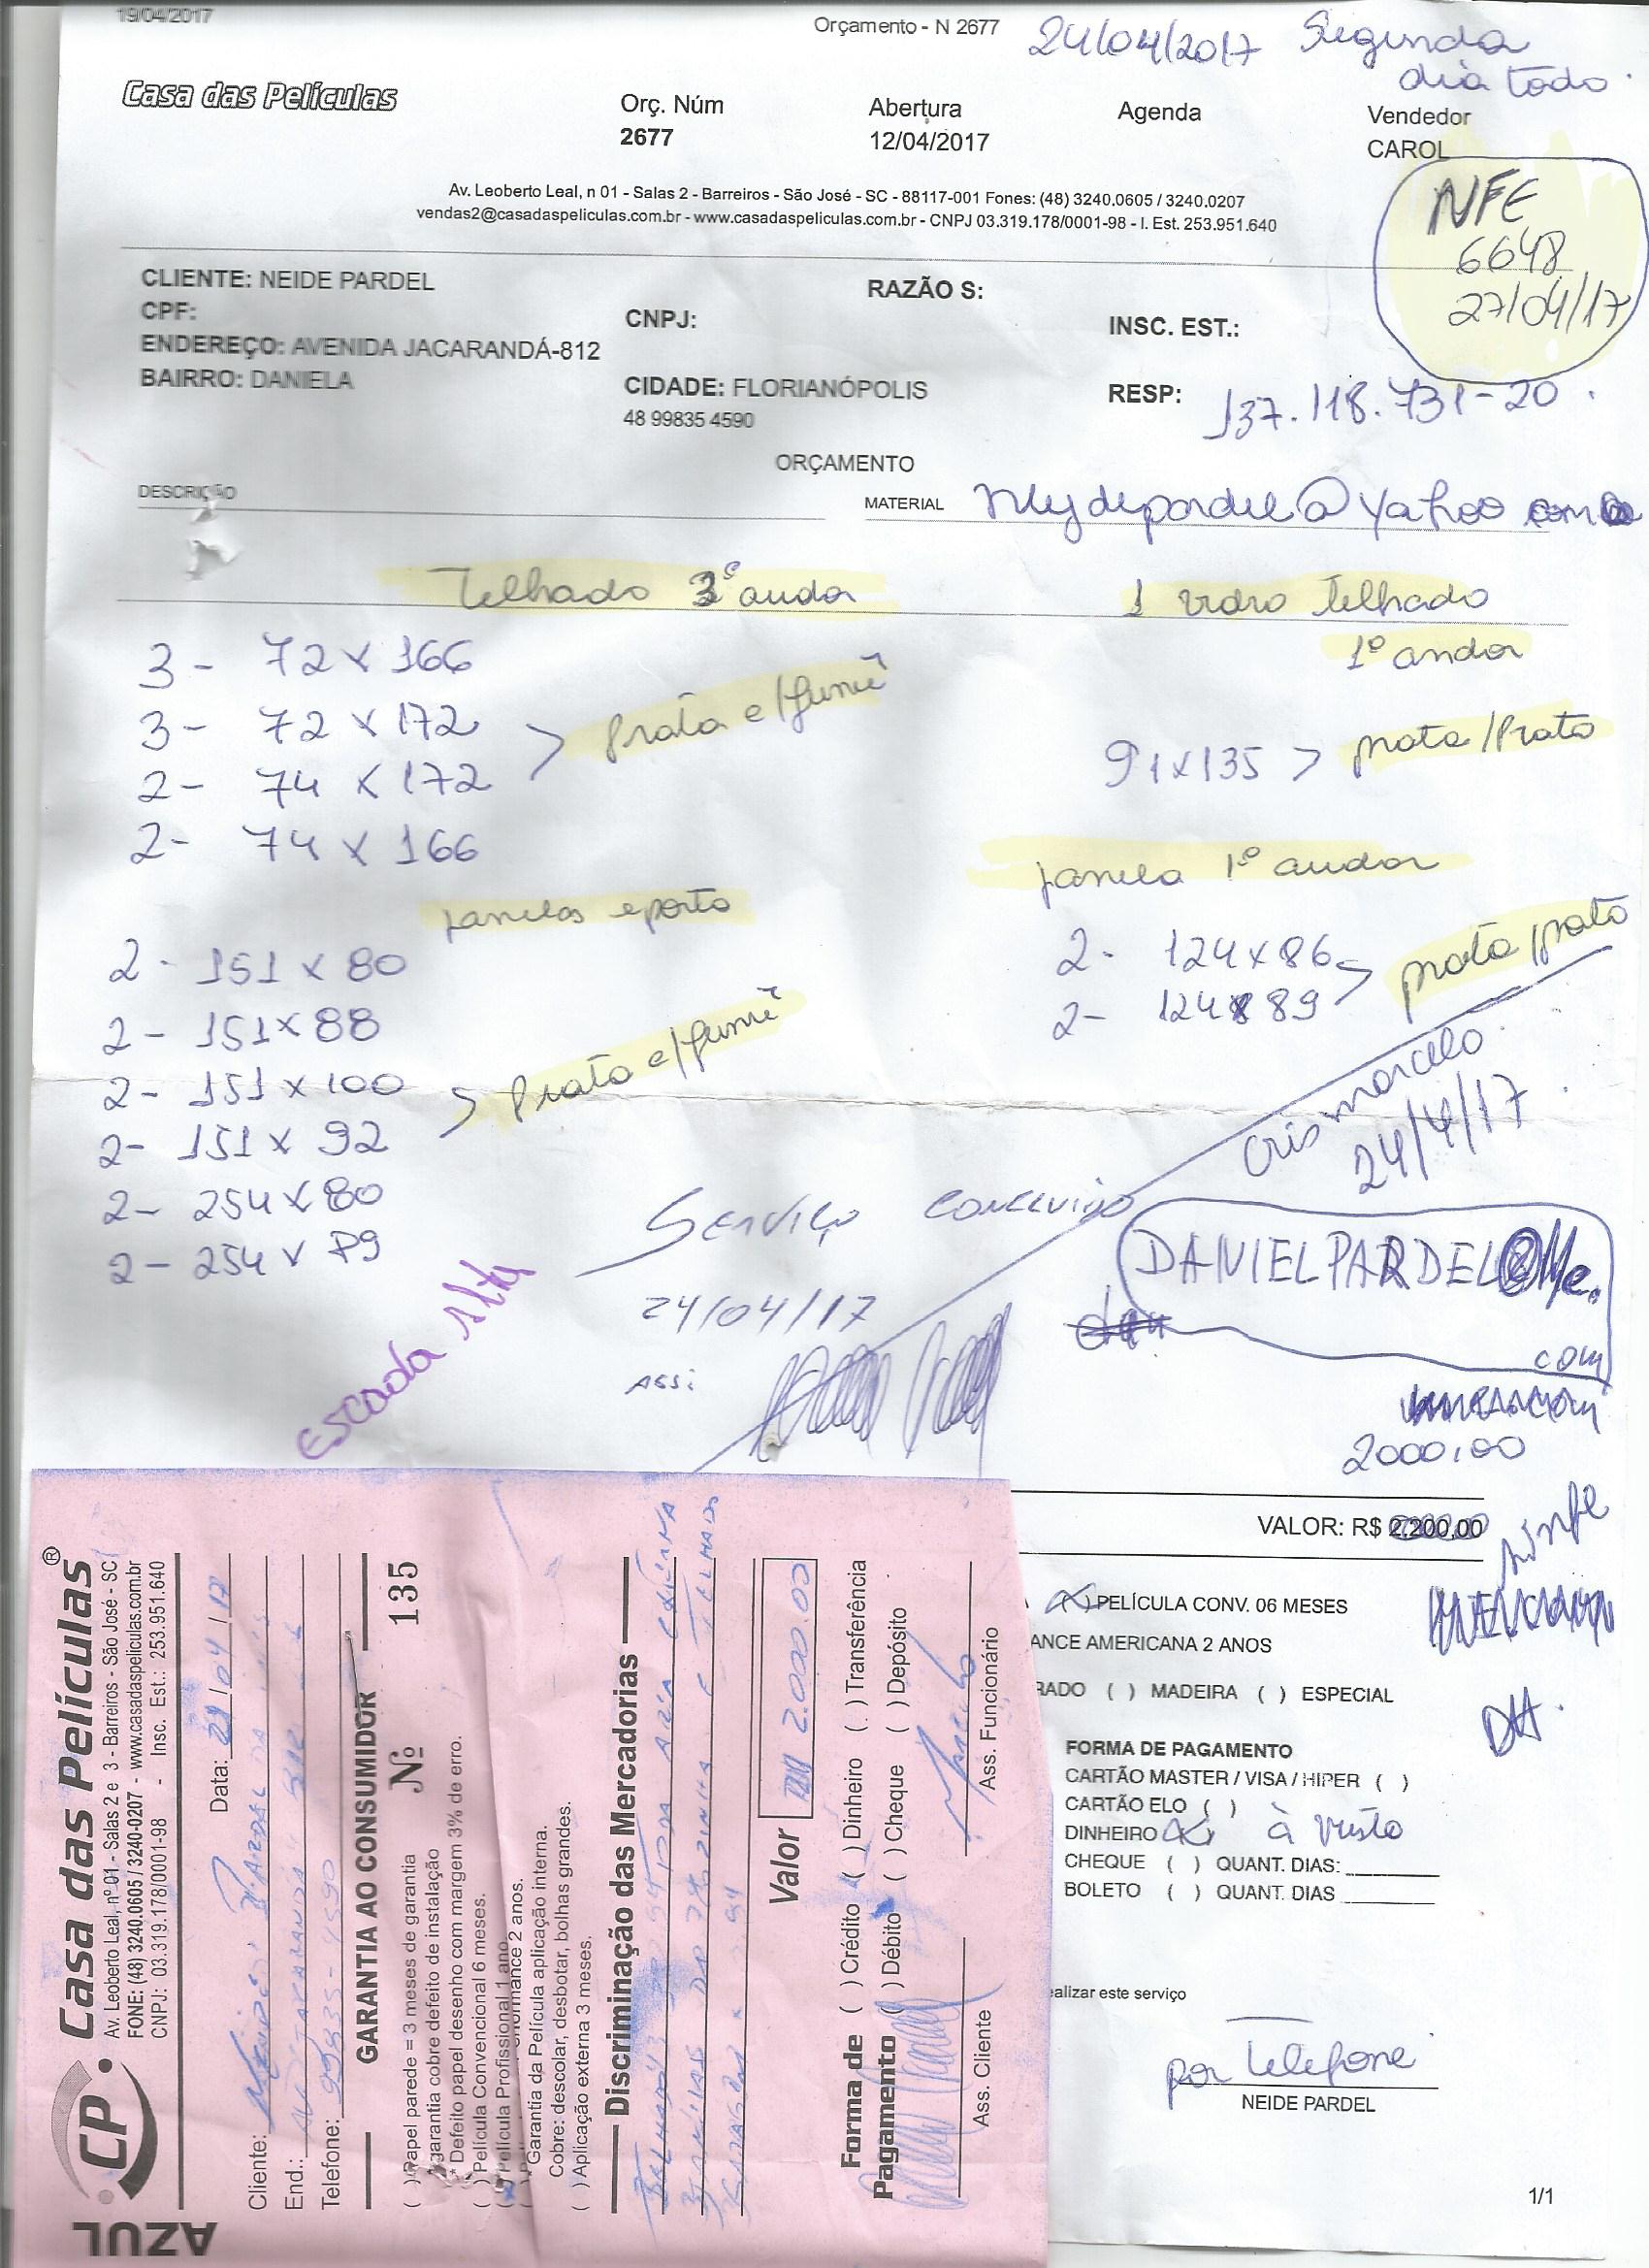 19/04/2017
Orçamento - N 2677
24/04/2017 Segunda
dia todo.
Casa das Películas
Orç. Núm
2677
Abertura
12/04/2017
Agenda
Vendedor
CAROL
NFE
6648
27/04/17
Av. Leoberto Leal, n 01 - Salas 2 - Barreiros - São José - SC - 88117-001 Fones: (48) 3240.0605 / 3240.0207
vendas2@casadaspeliculas.com.br - www.casadaspeliculas.com.br - CNPJ 03.319.178/0001-98 - I. Est. 253.951.640
CLIENTE: NEIDE PARDEL
RAZÃO S:
CPF:
CNPJ:
INSC. EST.:
ENDEREÇO: AVENIDA JACARANDÁ-812
BAIRRO: DANIELA
CIDADE: FLORIANÓPOLIS
RESP: 137.118.731-20.
48 99835 4590
ORÇAMENTO
DESCRIÇÃO
MATERIAL
neydepardel@yahoo com
Telhado 3º andar
1 vidro Telhado
1º andar
3- 72 x 166
3- 72 x 172
2- 74 x 172
2- 74 x 166
> Prata e/fumê
91x135 > prata/Prata
janela 1º andar
janelas e porta
2- 124x86
2- 124x89
> prata/prata
2- 151 x 80
2- 151x88
2- 151 x 100
2- 151 x 92
2- 254 x 80
2- 254 x 89
> Prata e/fumê
cris marcelo
24/4/17
Serviço concluído
24/04/17
ASSi
Escada Alta
DANIELPARDEL@Me.
com
2000,00
VALOR: R$ 2.200,00
(X) PELÍCULA CONV. 06 MESES
ANCE AMERICANA 2 ANOS
RADO ( ) MADEIRA ( ) ESPECIAL
FORMA DE PAGAMENTO
CARTÃO MASTER / VISA / HIPER ( )
CARTÃO ELO ( )
DINHEIRO (X) à vista
CHEQUE ( ) QUANT. DIAS:
BOLETO ( ) QUANT. DIAS
ealizar este serviço
por Telefone
NEIDE PARDEL
1/1
AZUL
CP
Casa das Películas®
Av. Leoberto Leal, nº 01 - Salas 2 e 3 - Barreiros - São José - SC
FONE: (48) 3240.0605 / 3240-0207 - www.casadaspeliculas.com.br
CNPJ: 03.319.178/0001-98 - Insc. Est.: 253.951.640
Data: 24/04/17
Cliente:
End.:
Telefone: 99835-4590
GARANTIA AO CONSUMIDOR
Nº 135
( ) Papel parede = 3 meses de garantia
garantia cobre defeito de instalação
* Defeito papel desenho com margem 3% de erro.
( ) Película Convencional 6 meses.
Película Profissional 1 ano
2 anos.
Garantia da Película aplicação interna.
Cobre: descolar, desbotar, bolhas grandes.
( ) Aplicação externa 3 meses.
Discriminação das Mercadorias
Valor 2.000,00
Forma de Pagamento
( ) Crédito ( ) Dinheiro ( ) Transferência
( ) Débito ( ) Cheque ( ) Depósito
Ass. Cliente
Ass. Funcionário